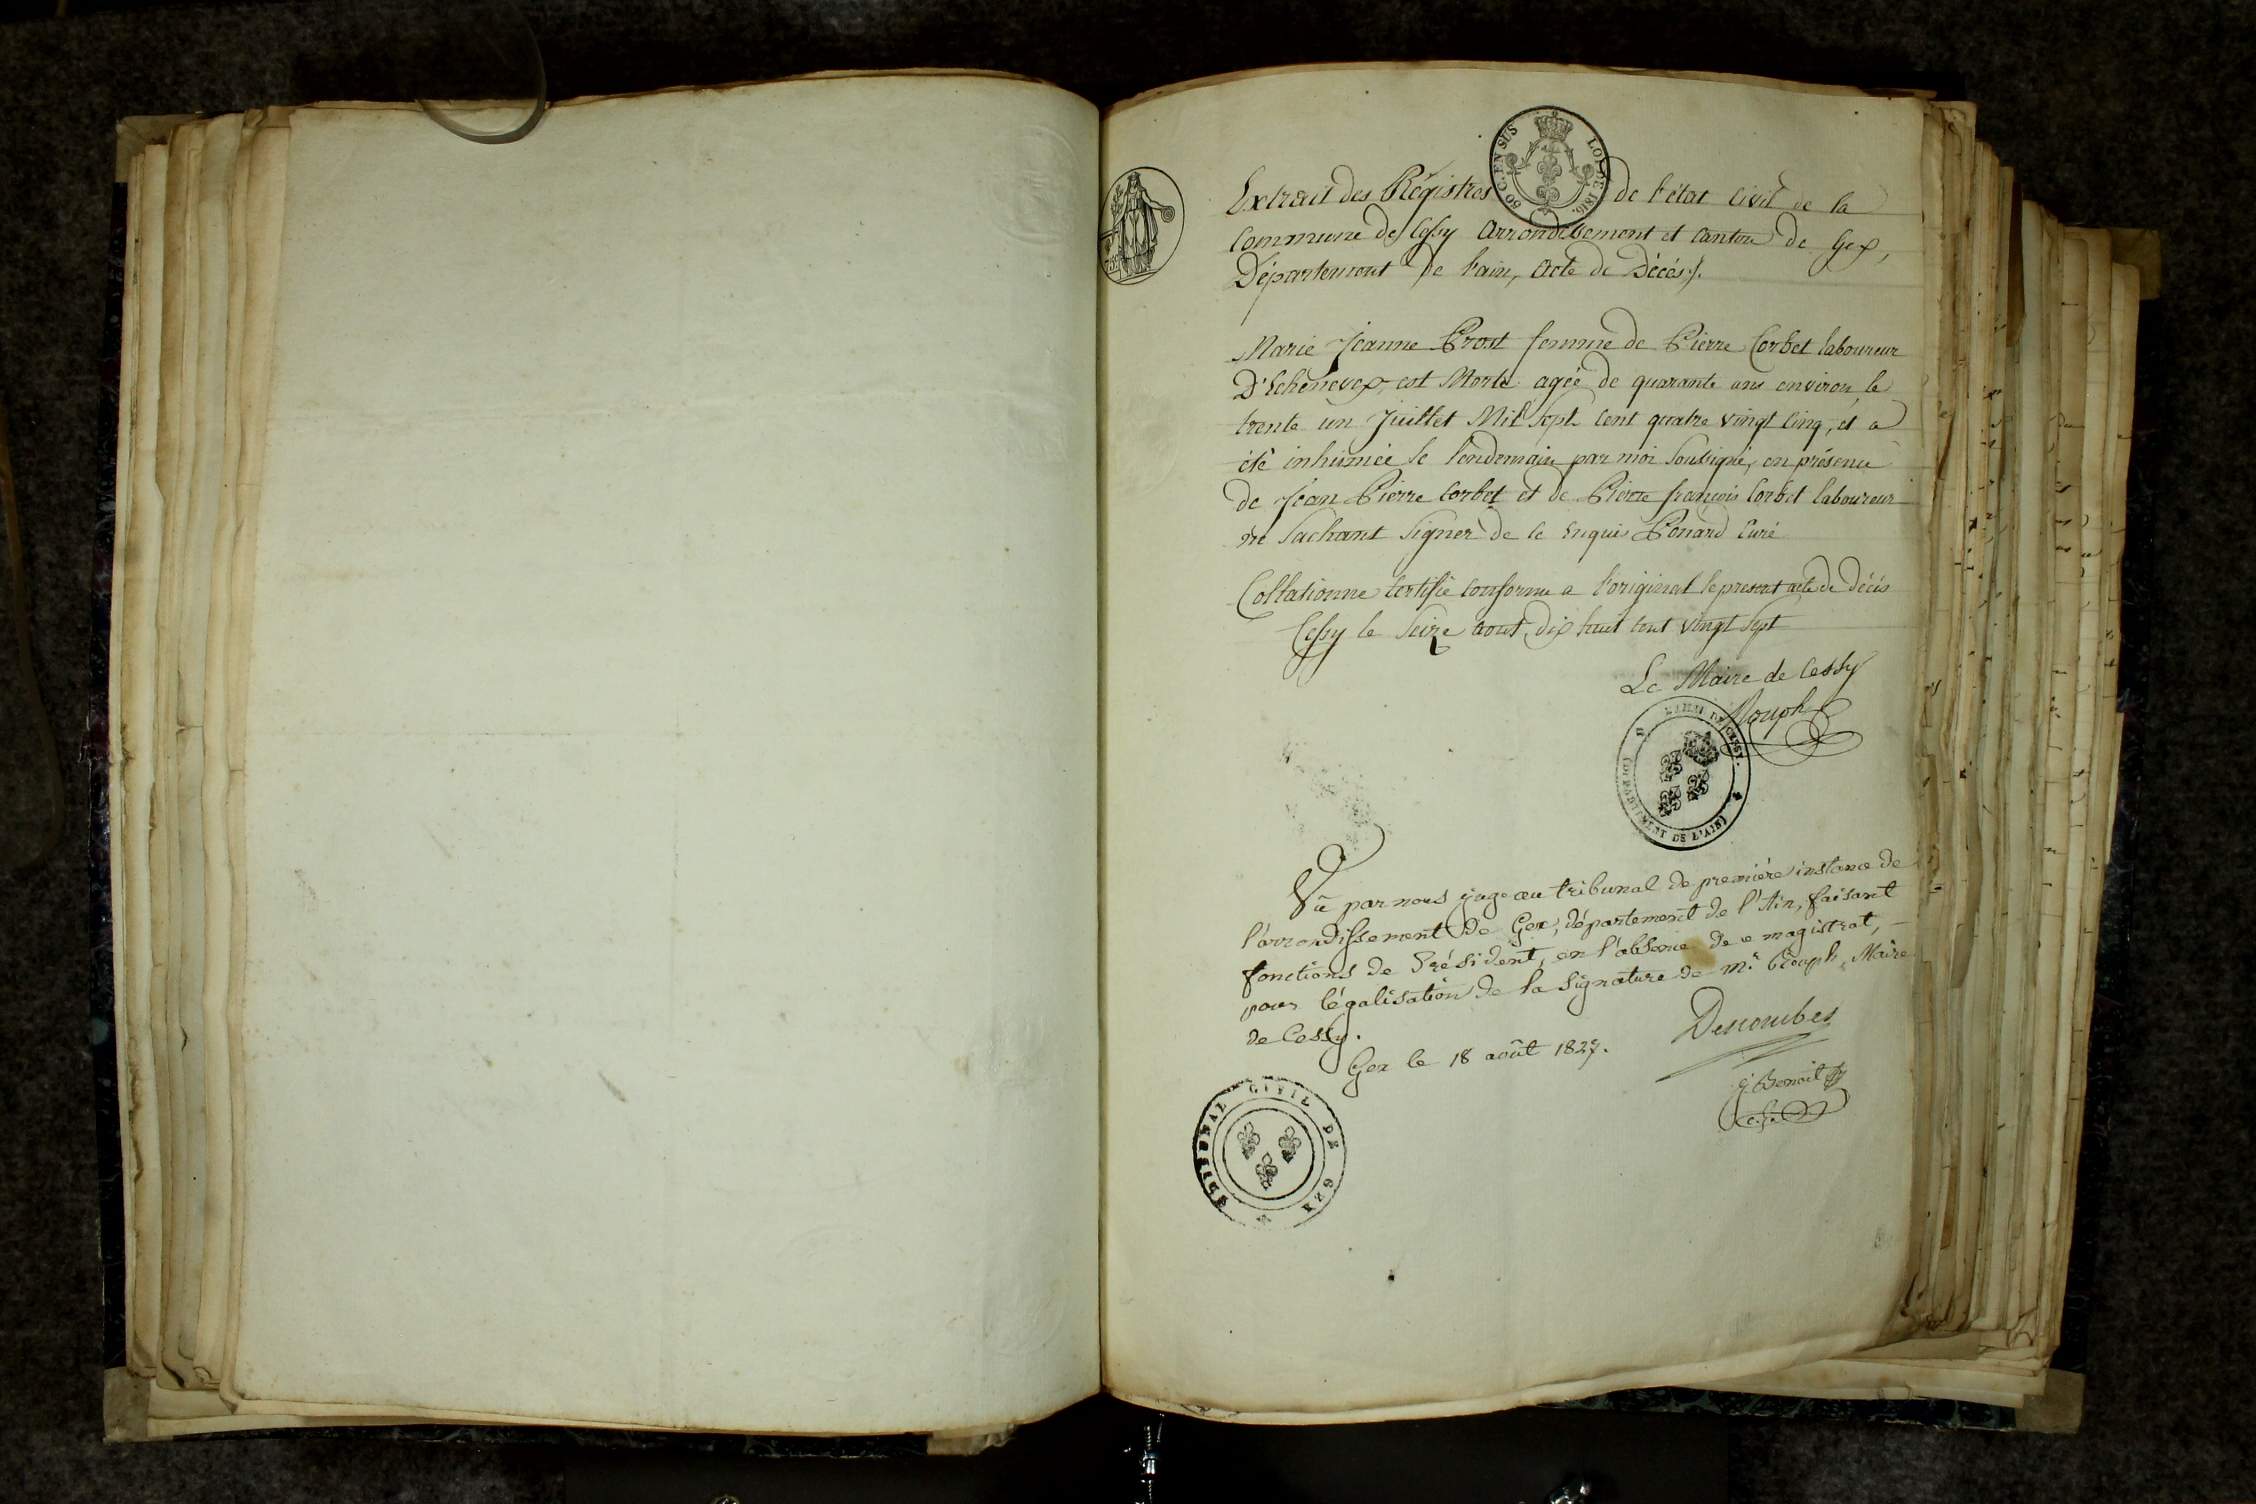 50 C. EN SUS LOI DE 1816.
Extrait des Régistres de l'état Civil de la
Commune de Cessy Arrondissement et Canton de Gex,
Département de l'ain, Acte de Décés.
Marie Jeanne Prost femme de Pierre Corbet laboureur
D'Echenevex, est Morte agée de quarante ans environ, le
trente un Juillet Mil Sept Cent quatre vingt Cinq, et a
été inhumée le lendemain par moi Soussigné, en présence
de Jean Pierre Corbet et de Pierre françois Corbet laboureur
ne Sachant Signer de ce enquis Ponard Curé
Collationne Certifié Conforme a l'original le present acte de décés
Cessy le Seize Aout, dix huit Cent vingt Sept
Le Maire de Cessy
Rouph
MAIRIE DE CESSY.
(DEPARTEMENT DE L'AIN)
Vû par nous juge au tribunal de première instance de
l'arrondissement de Gex, département de l'Ain, faisant
fonctions de Président, en l'absence de ce magistrat,
pour légalisation de la Signature de Mr. Rouph, Maire
de Cessy.
Gex le 18 août 1827.
Descombes
Benoit
TRIBUNAL CIVIL DE GEX